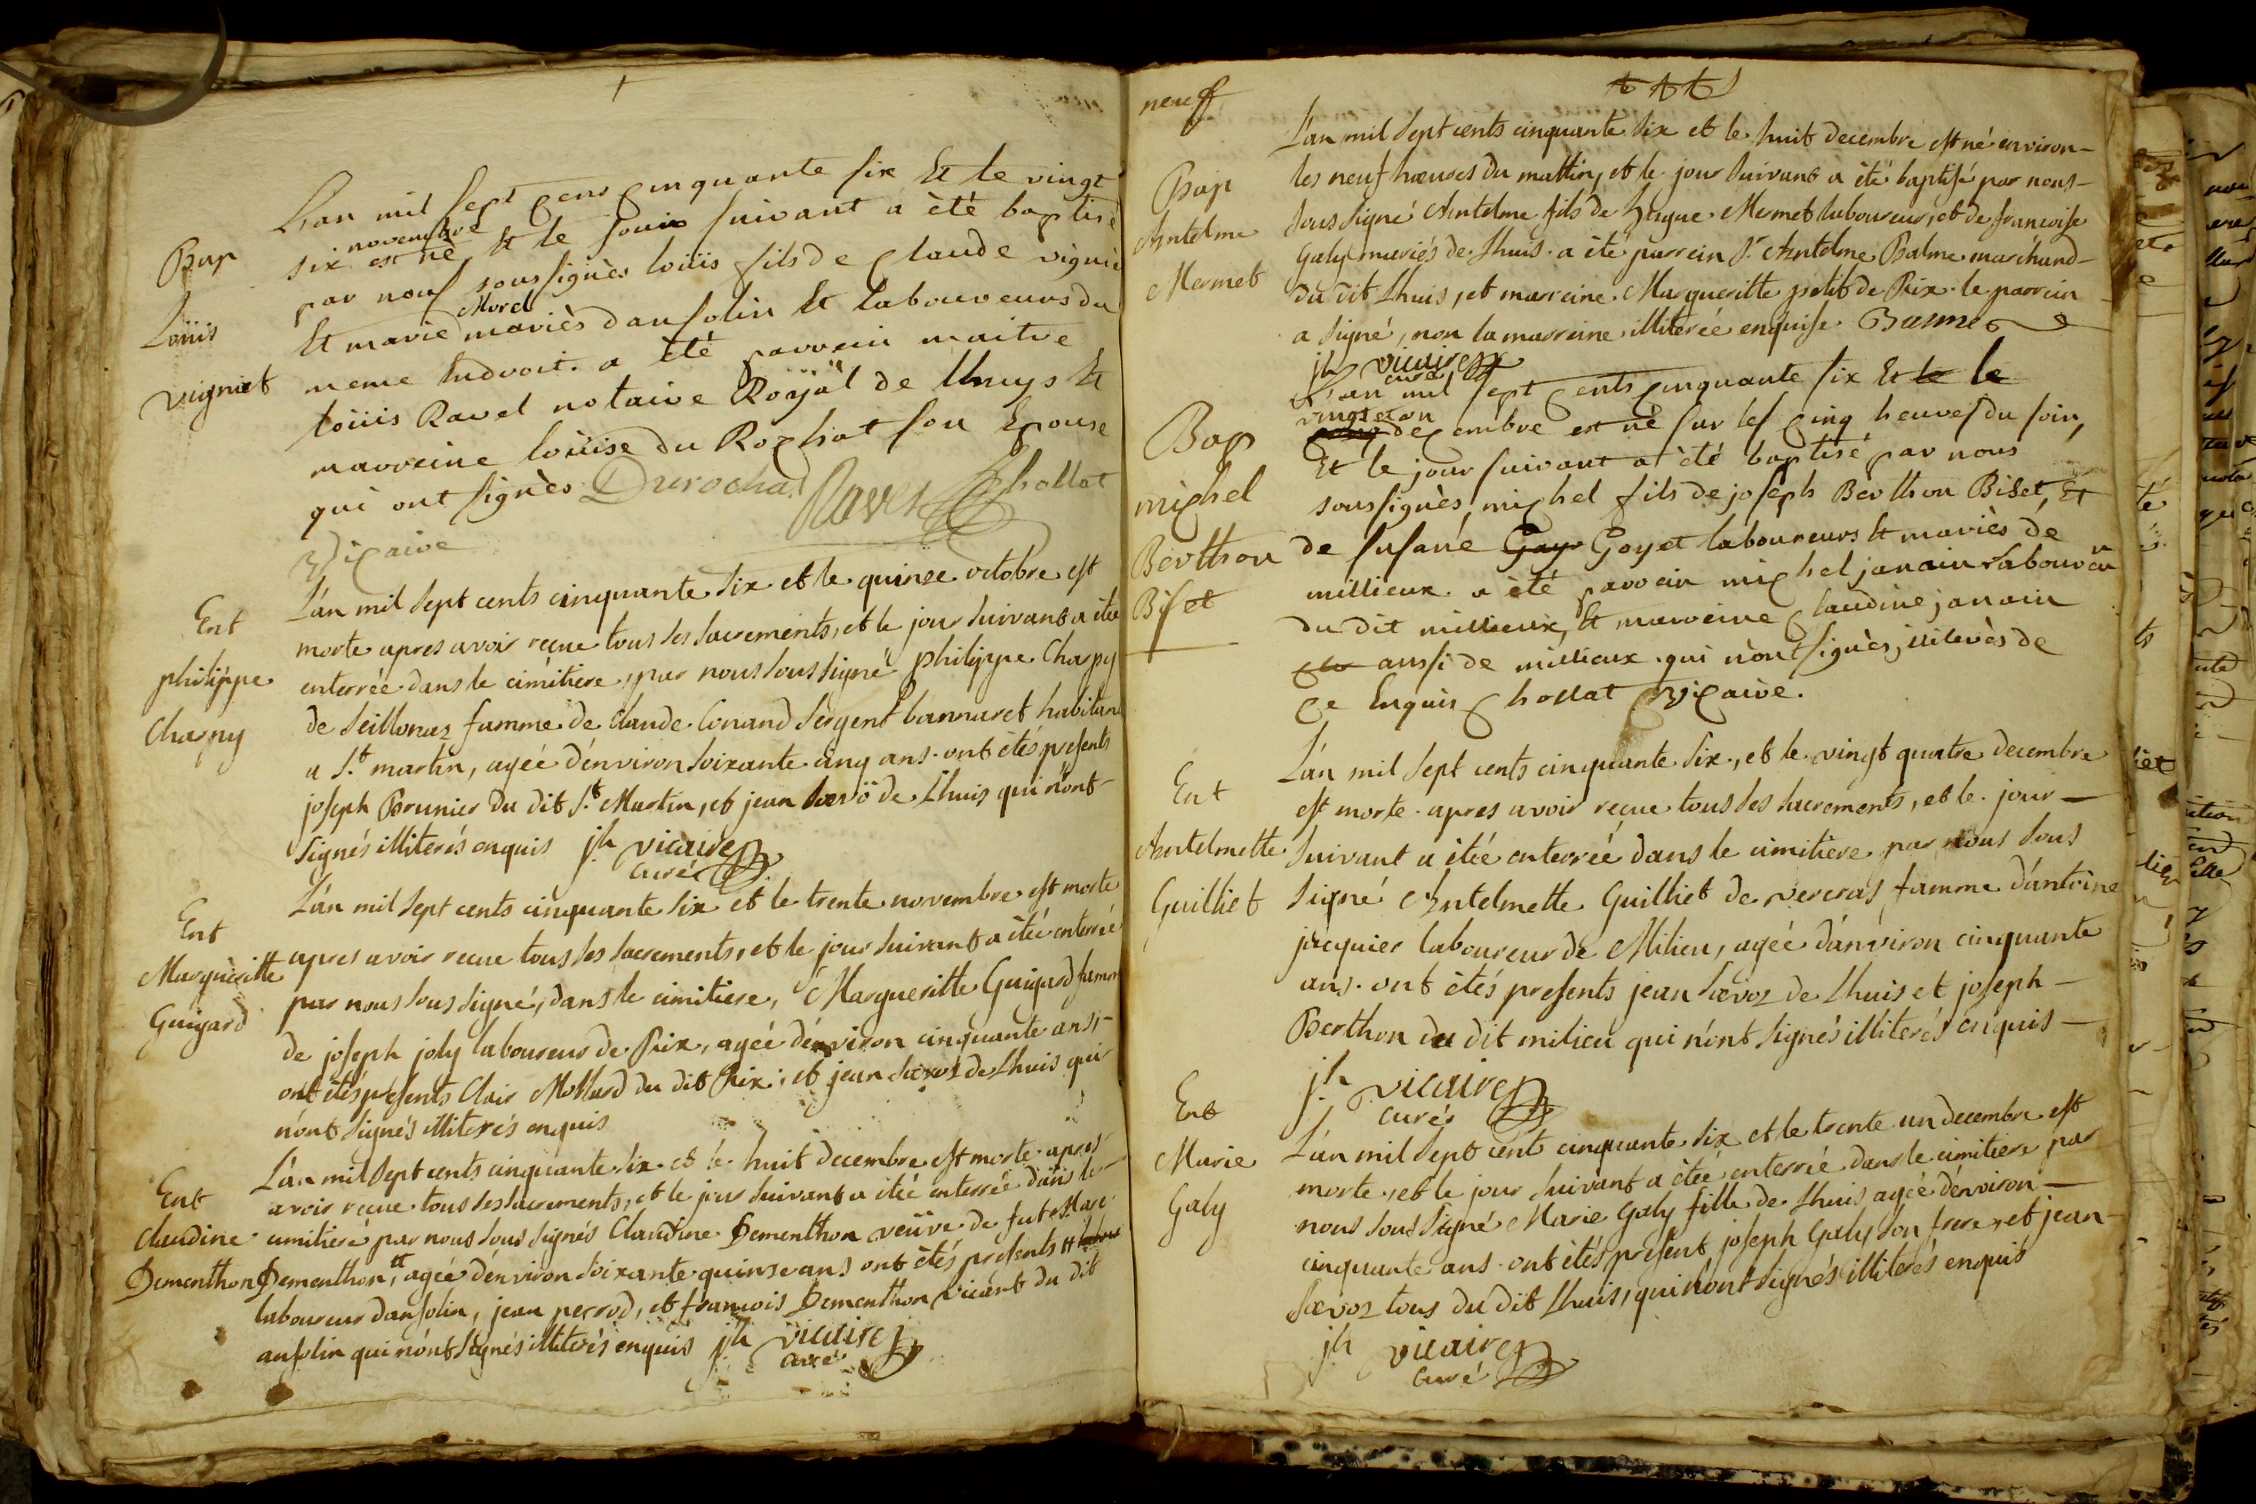 Bap
Loüis
vigniet
L'an mil sept cens cinquante six Et le vingt
six novembre est né Et le jour suivant a été baptisé
par nous soussignès loüis fils de claude vignie
Et marie Morel mariès d'ansolin Et laboureurs du
meme Endroit. a èté parrein maitre
loüis Ravel notaire Royäl de lhuys Et
marreine loüise du Rochat son Epouse
qui ont signès Durochat Ravel Chollat
vicaire
Ent
philippe
Charpy
L'an mil sept cents cinquante six et le quinze octobre est
morte apres avoir reçue tous les sacrements, et le jour suivant a été
enterrée dans le cimitiere, par nous soussigné philippe Charpy
de seillonaz famme de Claude Conand sergent bannaret habitant
a St martin, agéé d'énviron soixante cinq ans. ont étés presents
joseph Brunier du dit St Martin, et jean de Lhuis qui n'ont
signés illiterés enquis jh vicaire
curé
Ent
Marguèritte
Guigard
L'an mil sept cents cinquante six et le trente novembre est morte
apres avoir reçue tous les sacrements, et le jour suivant a étéé enterrée
par nous sous signé, dans le cimitiere, Margueritte Guigard famme
de joseph joly laboureur de Rix, agéé d'énviron cinquante ans,
ont étés presents Clair Mollard du dit Rix, et jean de Lhuis qui
n'ont signés illiterés enquis
Ent
Claudine
Dementhon
L'an mil sept cents cinquante six et le huit decembre est morte apres
avoir reçue tous les sacrements, et le jour suivant a étéé enterrée dans le
cimitiere par nous sous signés Claudine Dementhon veüve de fut Marc
Dementhon, agéé d'énviron soixante quinze ans ont étés presents
laboureur d'ansolin, jean perrod, et francois Dementhon vivant du dit
ansolin qui n'ont signés illiterés enquis jh vicaire
curé
neuf
Bap
Antelme
Mermet
L'an mil sept cents cinquante six et le huit decembre est né environ
les neuf heures du mattin, et le jour suivant a été baptisé par nous
sous signé Antelme fils de hugue Mermet laboureur, et de francoise
Galy mariés de Lhuis. a été parrein Sr Antelme Balme marchand
du dit Lhuis, et marreine Margueritte petit de Rix. le parrein
a signé, non la marreine illiterée enquise. Balme
jh vicaire
curé
Bap
michel
Berthon
Biset
L'an mil sept cents cinquante six Et le le
vingt et un decembre est né sur les cinq heures du soir,
Et le jour suivant a èté baptisé par nous
soussignès, michel fils de joseph Berthon Biset, Et
de susane Goyet laboureurs Et mariès de
millieux. a èté parrein michel janain laboureur
du dit millieux, Et marreine claudine janain
aussi de millieux. qui n'ont signès, illiterès de
ce Enquis Chollat vicaire.
Ent
Antelmette
Guilliet
L'an mil sept cents cinquante six, et le vingt quatre decembre
est morte apres avoir reçue tous les sacrements, et le jour
suivant a étéé enterréé dans le cimitiere par nous sous
signé Antelmette Guilliet de vercras famme d'antoine
jacquier laboureur de Milieu, agéé d'anviron cinquante
ans. ont étés presents jean de Lhuis et joseph
Berthon du dit milieu qui n'ont signés illiterés enquis
jh vicaire
curé
Ent
Marie
Galy
L'an mil sept cents cinquante six et le trente un decembre est
morte, et le jour suivant a étéé enterrée dans le cimitiere par
nous sous signé Marie Galy fille de Lhuis agéé d'énviron
cinquante ans. ont étés present joseph Galy son frere, et jean
tous du dit Lhuis, qui n'ont signés illiterés enquis
jh vicaire
curé